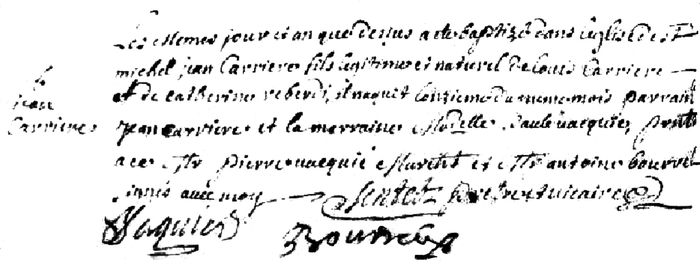 Les mesmes jour et an que dessus a ete baptizé dans leglise de st
michel jean Carriere fils legitime et naturel de louis Carriere
et de catherine reberdi, il naquit lonzieme du meme mois parrain
jean carriere et la marraine paule vacquier pnts
a ce mr pierre vacquié et mr antoine bourrel
signés avec moy
pretre et vicaire
jean
Carriere
Vaquier
Bourrel